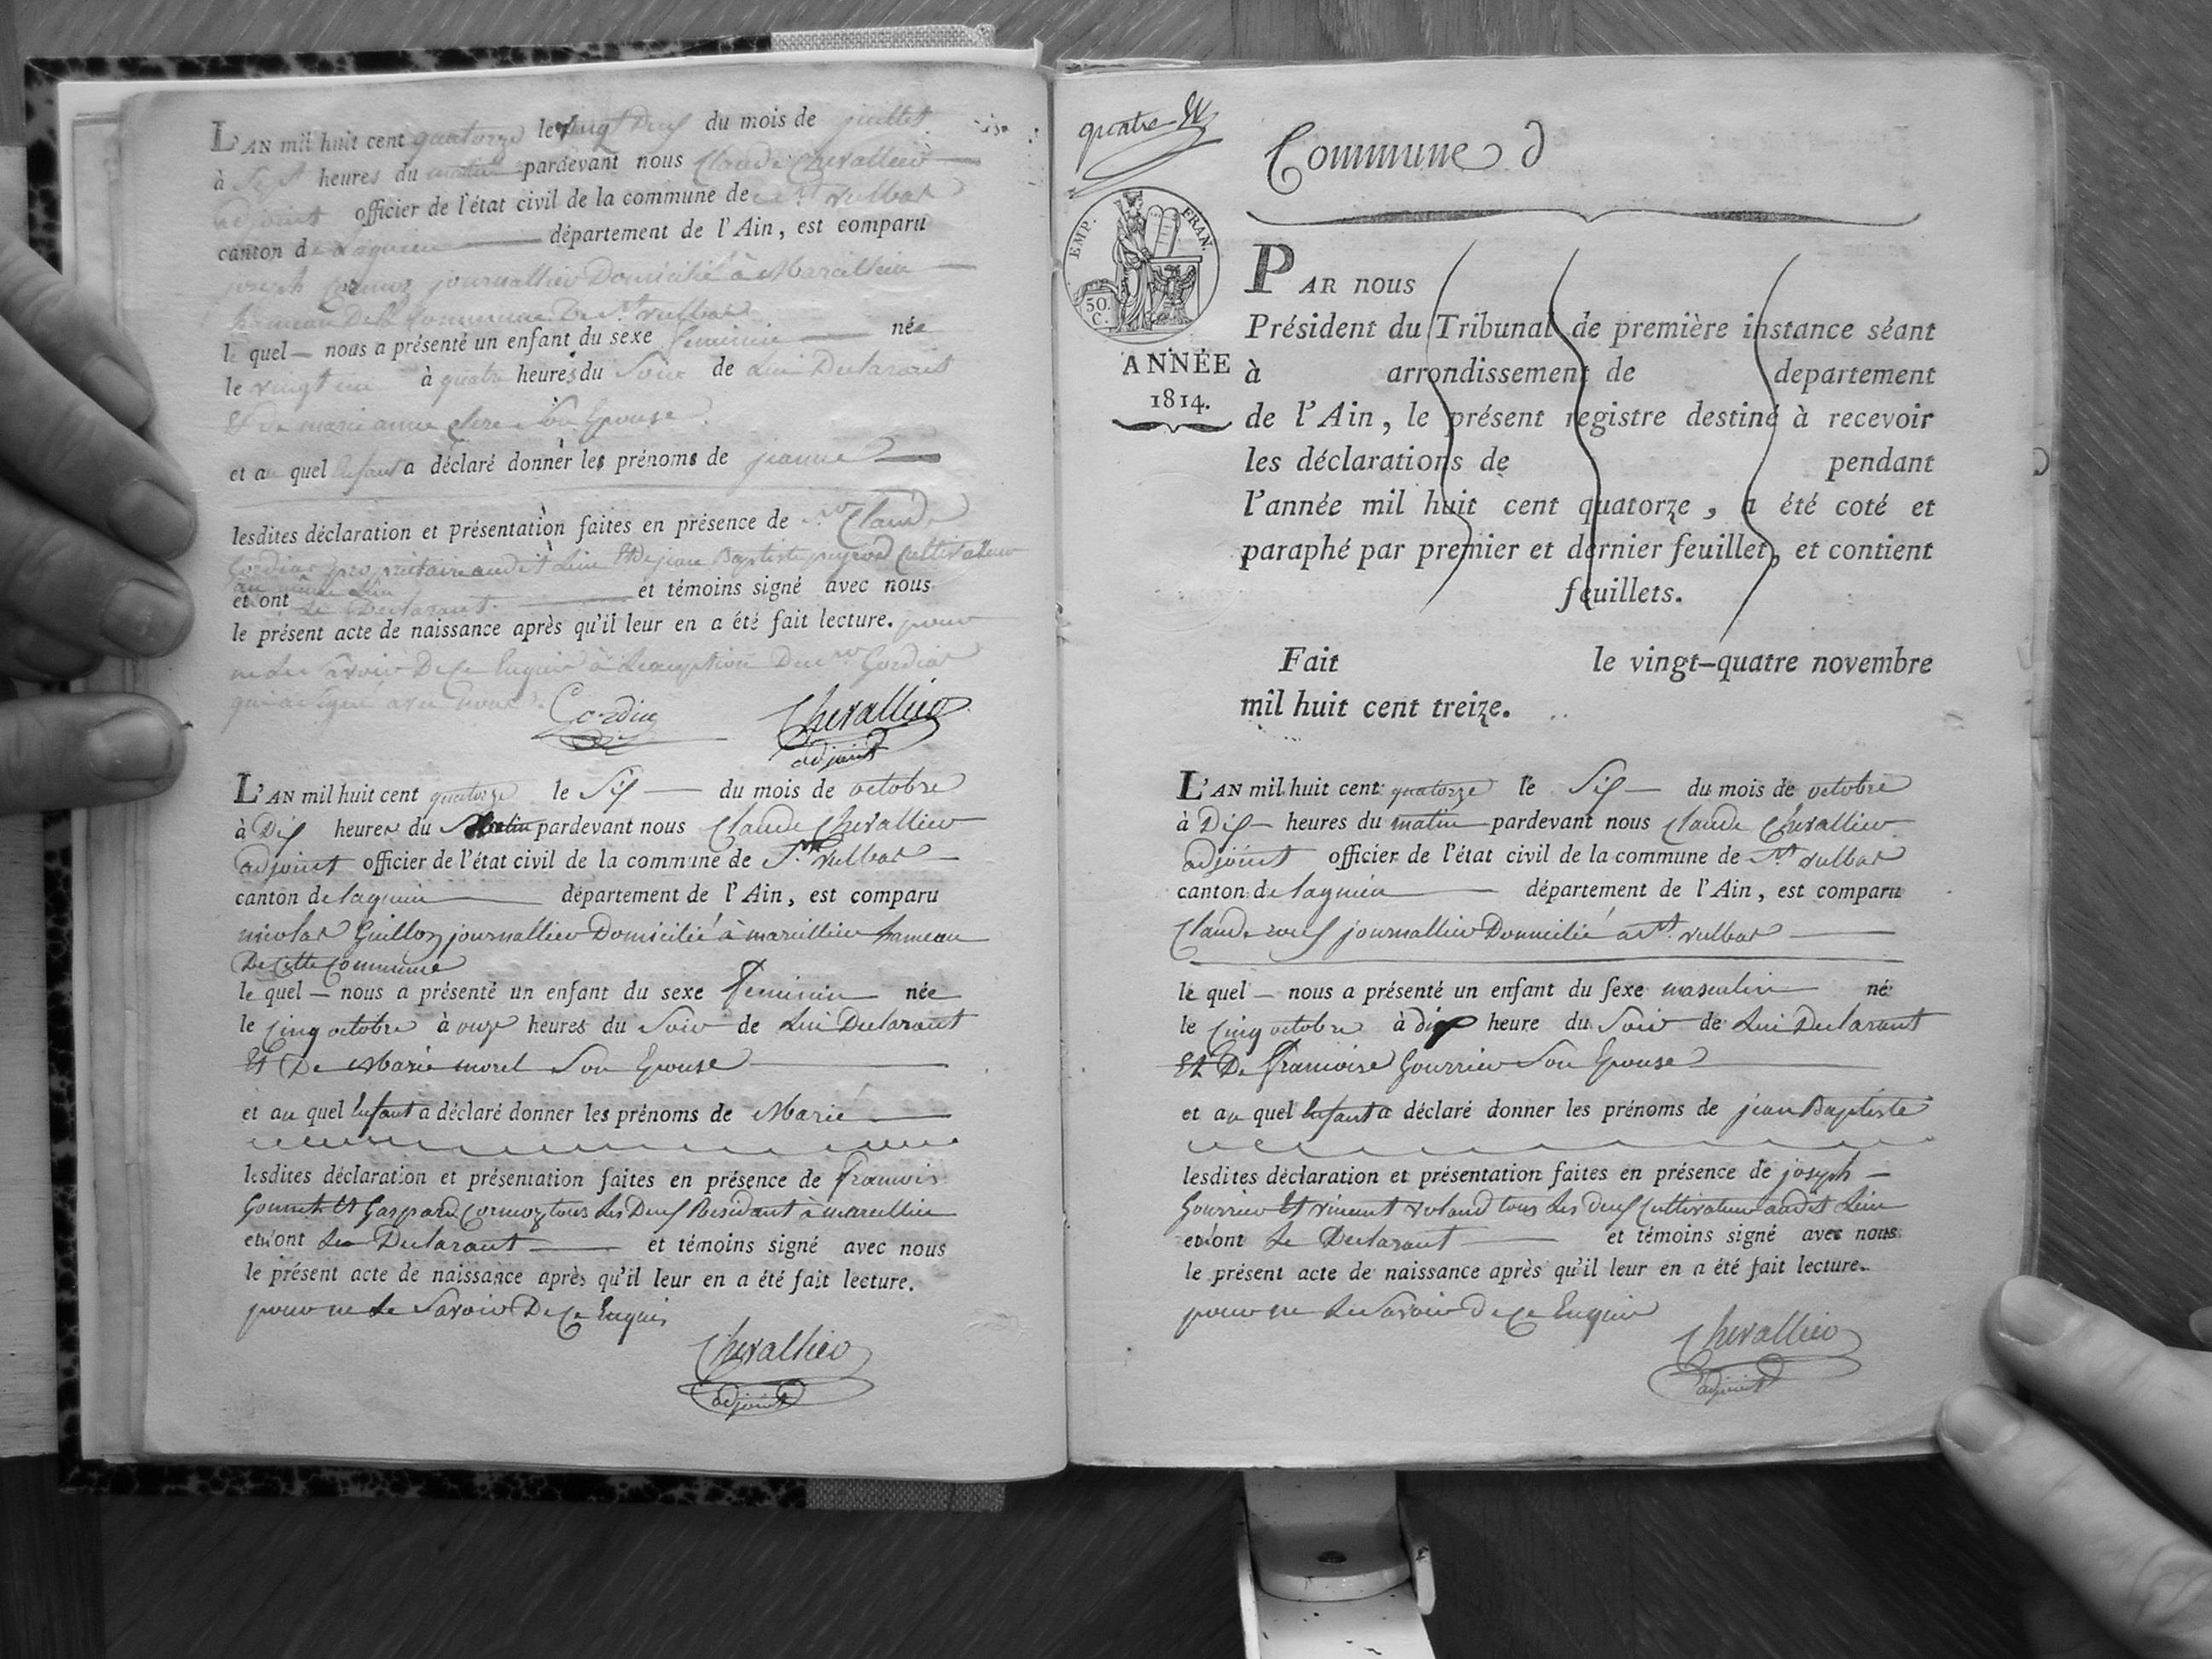 L'AN mil huit cent quatorze le vingt Deux du mois de juillet
à Sept heures du matin pardevant nous Claude Chevallier
adjoint officier de l'état civil de la commune de St. Vulbas
canton de Lagnieu département de l'Ain, est comparu
joseph journallier Domicilié à Marcillieu
hameau De la Commune De St. Vulbas
le quel — nous a présenté un enfant du sexe feminin née
le vingt un à quatre heures du Soir de Lui Declarant
Et de marie anne Son Epouse
et au quel Enfant a déclaré donner les prénoms de jeanne
lesdites déclaration et présentation faites en présence de Claude
Cordier propriétaire audit Lieu Et De jean Baptiste Cultivateur
au même Lieu
et ont Le Declarant et témoins signé avec nous
le présent acte de naissance après qu'il leur en a été fait lecture. pour
ne Le Savoir De Ce Enquis à Lexception Du Cordier
qui a Signé avec nous
Cordier Chevallier
adjoint
L'AN mil huit cent quatorze le Six du mois de octobre
à Dix heures du Matin pardevant nous Claude Chevallier
adjoint officier de l'état civil de la commune de St. Vulbas
canton de lagnieu département de l'Ain, est comparu
nicolas Guillon journallier Domicilié à marcillieu hameau
De Cette Commune
le quel — nous a présenté un enfant du sexe feminin née
le Cinq octobre à onze heures du Soir de Lui Declarant
Et De Marie morel Son Epouse
et au quel Enfant a déclaré donner les prénoms de Marie
lesdites déclaration et présentation faites en présence de francois
Gonnet Et Gaspard Cormoz tous Les Deux Residant à marcillieu
et ont Le Declarant et témoins signé avec nous
le présent acte de naissance après qu'il leur en a été fait lecture.
pour ne Le Savoir De Ce Enquis
Chevallier
adjoint
quatre
Commune d
EMP. FRAN.
50.
C.
ANNÉE
1814.
PAR nous
Président du Tribunal de première instance séant
à arrondissement de departement
de l'Ain, le présent registre destiné à recevoir
les déclarations de pendant
l'année mil huit cent quatorze, a été coté et
paraphé par premier et dernier feuillet, et contient
feuillets.
Fait le vingt-quatre novembre
mil huit cent treize.
L'AN mil huit cent quatorze le Six du mois de octobre
à Dix heures du matin pardevant nous Claude Chevallier
adjoint officier de l'état civil de la commune de St. Vulbas
canton de lagnieu département de l'Ain, est comparu
Claude journallier Domicilié à St. Vulbas
le quel — nous a présenté un enfant du sexe masculin né
le Cinq octobre à dix heure du Soir de Lui Declarant
Et De francoise Gourrier Son Epouse
et au quel Enfant a déclaré donner les prénoms de jean Baptiste
lesdites déclaration et présentation faites en présence de joseph
Gourrier Et vincent roland tous Les deux Cultivateur audit Lieu
et ont Le Declarant et témoins signé avec nous
le présent acte de naissance après qu'il leur en a été fait lecture.
pour ne Le Savoir de Ce Enquis
Chevallier
adjoint